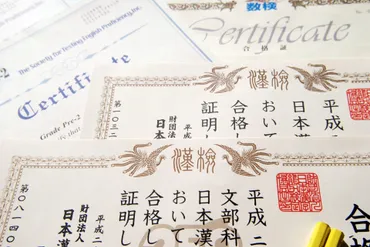 数検
Certificate
合格証
The Society for Testing English Proficiency, Inc.
Certificate
Grade Pre-2
漢検
平成
日本漢
おいて
合格し
証明し
平成
財団法人
日本
漢検
合格
平成二
文部科
日本漢
おいて
合格し
証明し
平成二
財団法人
日本漢